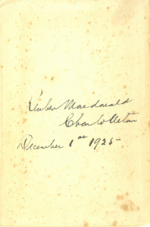 Macdonald
Charlottetown
December 1st 1925-